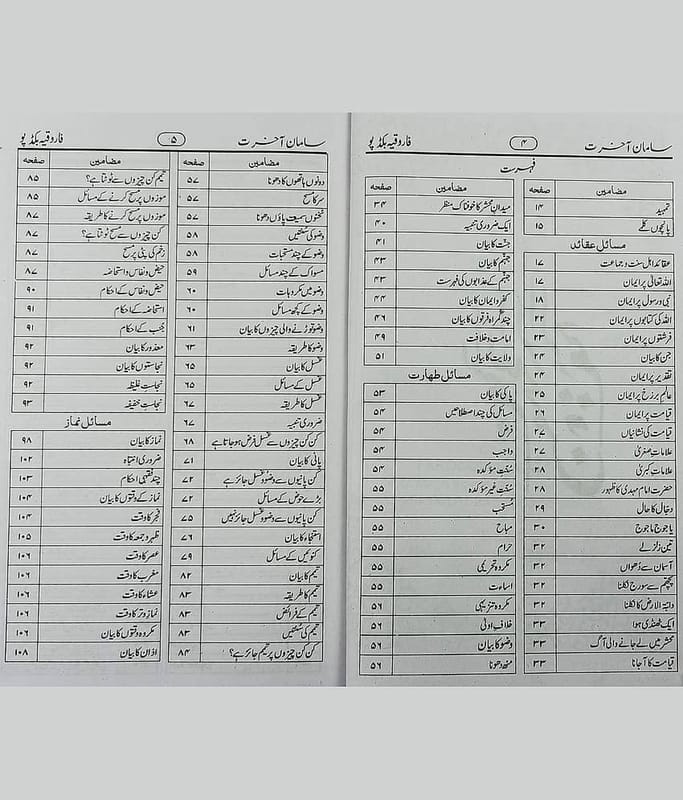 سامان آخرت ۴ فاروقیہ بکڈپو
فہرست
مضامین صفحہ
تمہید ۱۴
پانچوں کلمے ۱۵
مسائل عقائد
عقائد اہل سنت و جماعت ۱۷
اللہ تعالیٰ پر ایمان ۱۷
نبی و رسول پر ایمان ۱۸
اللہ کی کتابوں پر ایمان ۲۲
فرشتوں پر ایمان ۲۳
جن کا بیان ۲۴
تقدیر پر ایمان ۲۴
عالم برزخ پر ایمان ۲۵
قیامت پر ایمان ۲۶
قیامت کی نشانیاں ۲۷
علامات صغریٰ ۲۷
علامات کبریٰ ۲۸
حضرت امام مہدی کا ظہور ۲۸
دجال کا حال ۲۹
یاجوج ماجوج ۳۰
تین زلزلے ۳۲
آسمان سے دھواں ۳۲
پچھم سے سورج نکلنا ۳۲
دابۃ الارض کا نکلنا ۳۲
ایک ٹھنڈی ہوا ۳۳
محشر میں لے جانے والی آگ ۳۳
قیامت کا آجانا ۳۳
مضامین صفحہ
میدان محشر کا خوفناک منظر ۳۴
ایک ضروری تنبیہ ۴۰
جنت کا بیان ۴۱
جہنم کا بیان ۴۳
جہنم کے عذابوں کی فہرست ۴۳
کفر و ایمان کا بیان ۴۴
چند گمراہ فرقوں کا بیان ۴۶
امامت و خلافت ۴۹
ولایت کا بیان ۵۱
مسائل طہارت
پاکی کا بیان ۵۳
مسائل کی چند اصطلاحیں ۵۴
فرض ۵۴
واجب ۵۴
سنت مؤکدہ ۵۴
سنت غیر مؤکدہ ۵۵
مستحب ۵۵
مباح ۵۵
حرام ۵۵
مکروہ تحریمی ۵۵
اساءت ۵۵
مکروہ تنزیہی ۵۶
خلاف اولیٰ ۵۶
وضو کا بیان ۵۶
منھ دھونا ۵۶
سامان آخرت ۵ فاروقیہ بکڈپو
مضامین صفحہ
دونوں ہاتھوں کا دھونا ۵۷
سر کا مسح ۵۷
ٹخنوں سمیت پاؤں دھونا ۵۷
وضو کی سنتیں ۵۸
وضو کے چند مستحبات ۵۸
مسواک کے چند مسائل ۵۹
وضو میں مکروہات ۶۰
وضو کے کچھ مسائل ۶۰
وضو توڑنے والی چیزوں کا بیان ۶۱
وضو کا طریقہ ۶۳
غسل کا بیان ۶۵
غسل کے مسائل ۶۵
غسل کا طریقہ ۶۷
ضروری تنبیہ ۶۷
کن کن چیزوں سے غسل فرض ہو جاتا ہے ۶۸
پانی کا بیان ۷۱
کن پانیوں سے وضو و غسل جائز ہے ۷۲
بڑے حوض کے مسائل ۷۲
کن پانیوں سے وضو و غسل جائز نہیں ۷۵
استنجاء کا بیان ۷۶
کنوئیں کے مسائل ۷۹
تیمم کا بیان ۸۲
تیمم کا طریقہ ۸۳
تیمم کے فرائض ۸۳
تیمم کی سنتیں ۸۳
کن کن چیزوں پر تیمم جائز ہے؟ ۸۴
مضامین صفحہ
تیمم کن چیزوں سے ٹوٹتا ہے؟ ۸۵
موزوں پر مسح کرنے کے مسائل ۸۵
موزوں پر مسح کرنے کا طریقہ ۸۷
کن چیزوں سے مسح ٹوٹتا ہے؟ ۸۷
زخم کی پٹی پر مسح ۸۷
حیض و نفاس و استحاضہ ۸۷
حیض و نفاس کے احکام ۹۰
استحاضہ کے احکام ۹۱
جنب کے احکام ۹۱
معذور کا بیان ۹۲
نجاستوں کا بیان ۹۲
نجاست غلیظہ ۹۲
نجاست خفیفہ ۹۳
مسائل نماز
نماز کا بیان ۹۸
ضروری انتباہ ۱۰۲
چند فقہی احکام ۱۰۳
نماز کے وقتوں کا بیان ۱۰۴
فجر کا وقت ۱۰۴
ظہر و جمعہ کا وقت ۱۰۵
عصر کا وقت ۱۰۶
مغرب کا وقت ۱۰۶
عشاء کا وقت ۱۰۶
نماز وتر کا وقت ۱۰۶
مکروہ وقتوں کا بیان ۱۰۶
اذان کا بیان ۱۰۸